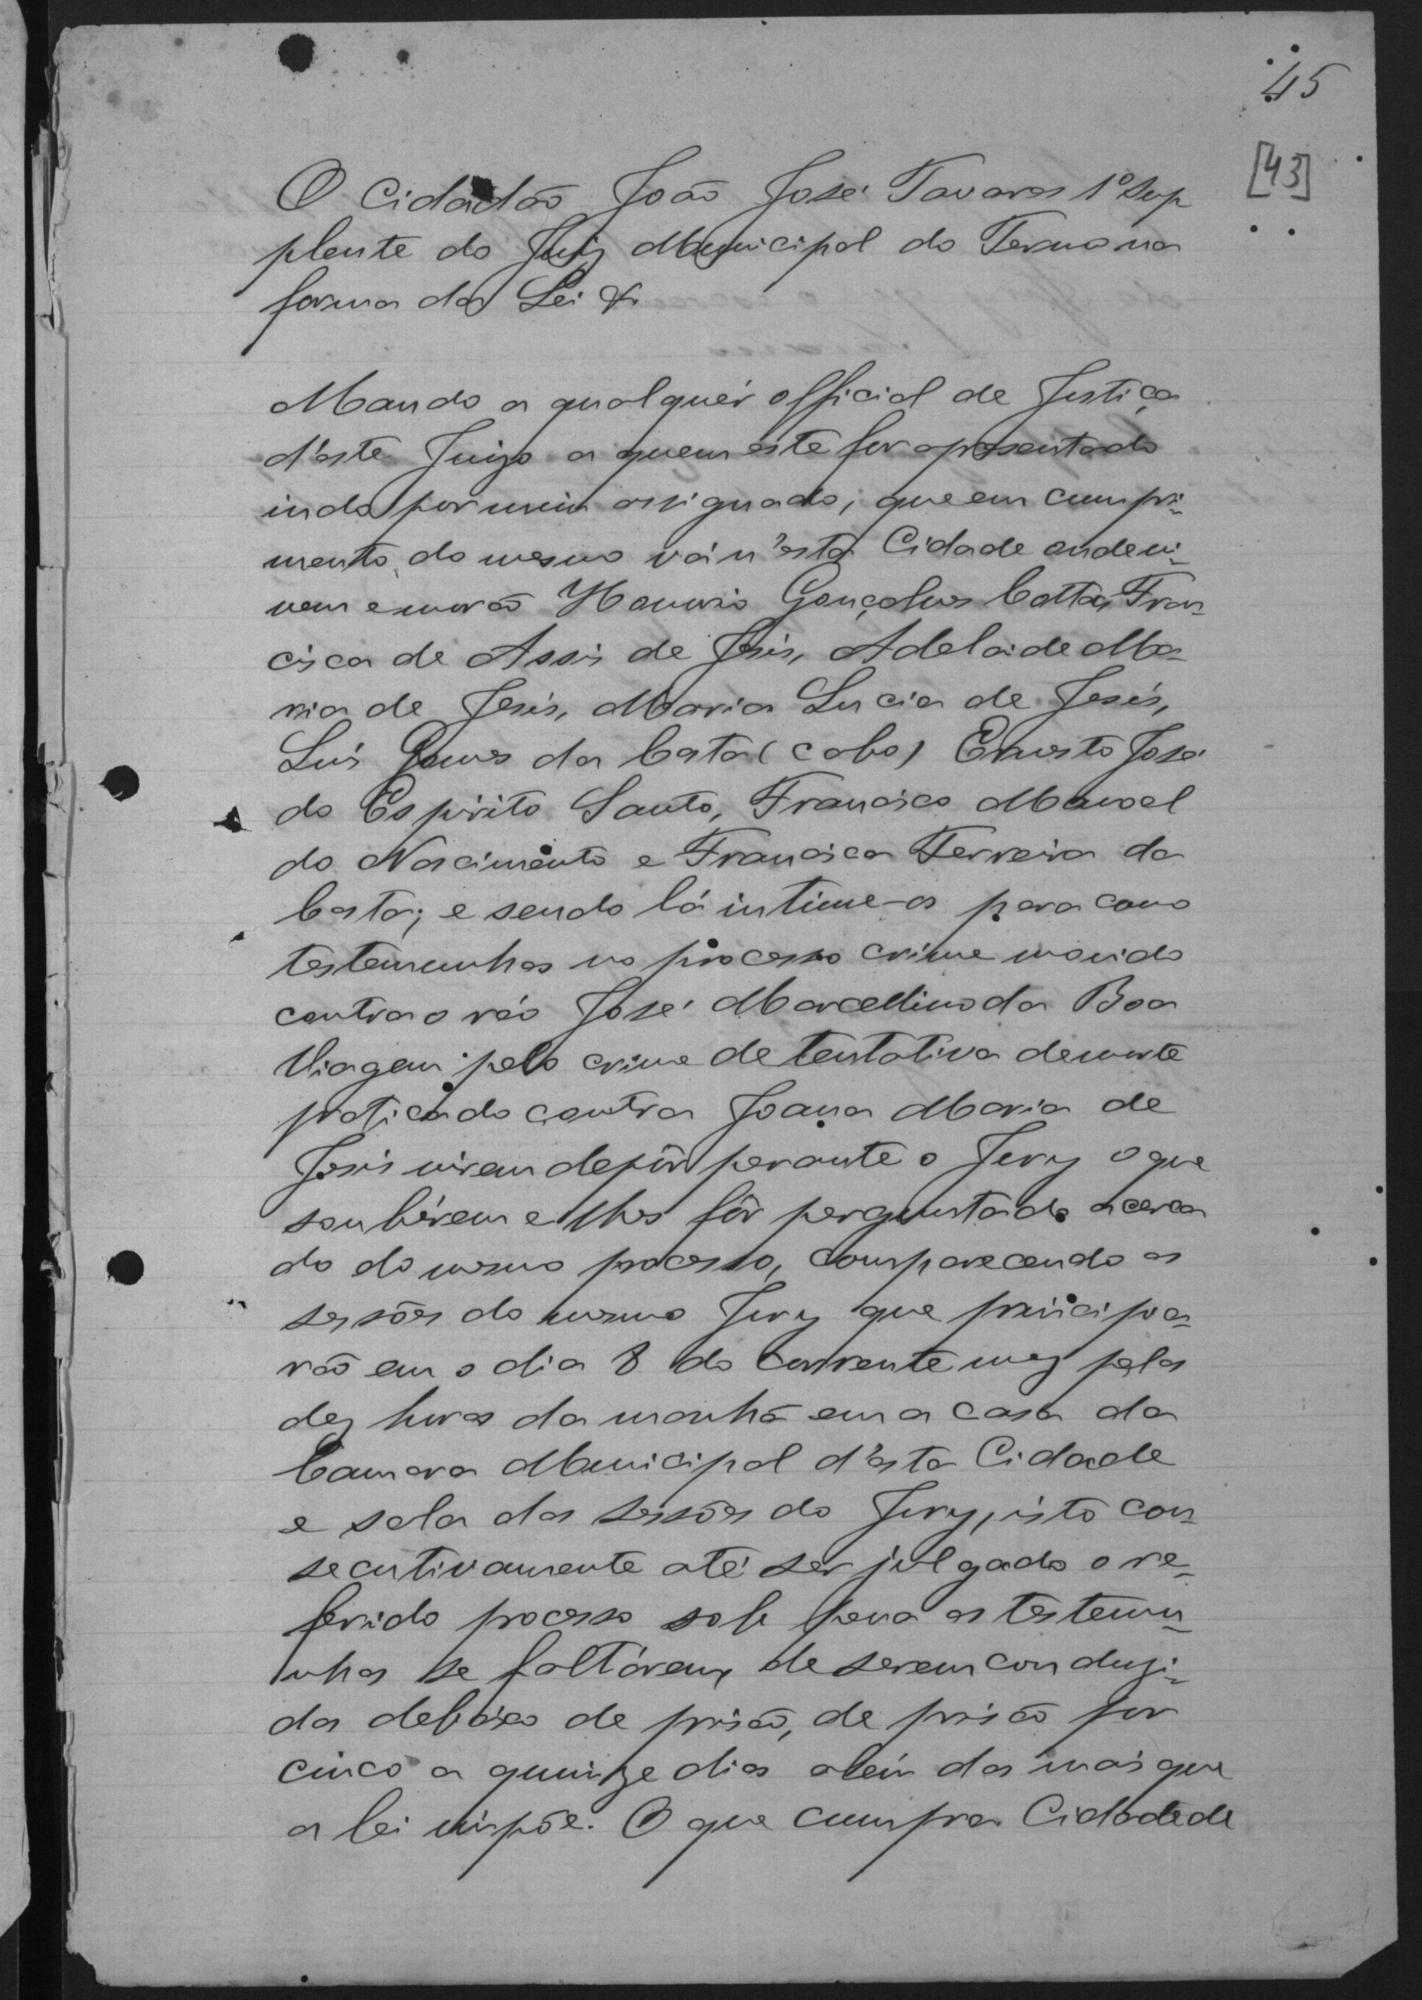 45
[43]
O Cidadão João José Tavares 1º Sup
plente do Juiz Municipal do Termo na
forma da Lei &
Mando a qualquér official de Justiça
d'este Juizo a quem este for apresentado
indo por mim assignado, que em cumpri-
mento do mesmo vá n'esta Cidade onde vi-
vem e morão Honorio Gonçalves Cotta, Fran-
cisca de Assis de Jesus, Adelaide Ma-
ria de Jesús, Maria Lucia de Jesús,
Luis Gomes da Costa (cabo) Ernesto José
do Espirito Santo, Francisco Manoel
do Nascimento e Francisca Ferreira da
Costa; e sendo lá intime-os para como
testemunhas no processo crime movido
contra o réo José Marcellino da Boa
Viagem pelo crime de tentativa de morte
praticado contra Joana Maria de
Jesus virem depôr perante o Jury o que
soubérem e lhes fôr perguntado acerca
do do mesmo processo, comparecendo as
sessões do mesmo Jury que principia-
rão em o dia 8 do corrente mez pelas
dez horas da manhã em a casa da
Camara Municipal d'esta Cidade
e sala das sessões do Jury, isto con-
secutivamente até ser julgado o re-
ferido processo sob pena as testemu-
nhas se faltárem, de serem conduzi-
das debaixo de prisão, de prisão por
cinco a quinze dias além da mais que
a lei impõe. O que cumpra Cidade de